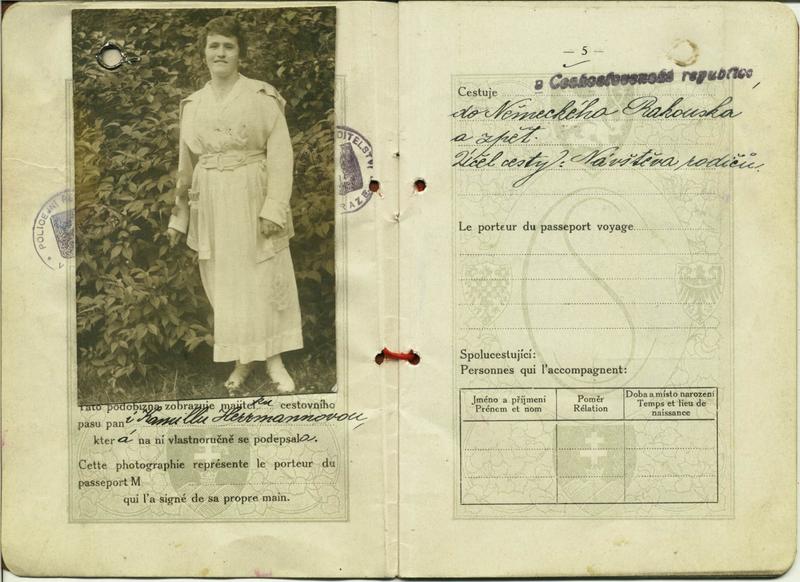 POLICEJNÍ
ŘEDITELSTV
V
PRAZE
Tato podobizna zobrazuje majitelku cestovního
pasu paní Kamillu Herrmannovou,
která na ní vlastnoručně se podepsala.
Cette photographie représente le porteur du
passeport M
qui l'a signé de sa propre main.
— 5 —
Cestuje z Československé republiky
do Německého Rakouska
a zpět.
Účel cesty: Návštěva rodičů.
Le porteur du passeport voyage
Spolucestující:
Personnes qui l'accompagnent:
Jméno a příjmení
Prénom et nom
Poměr
Rélation
Doba a místo narození
Temps et lieu de
naissance